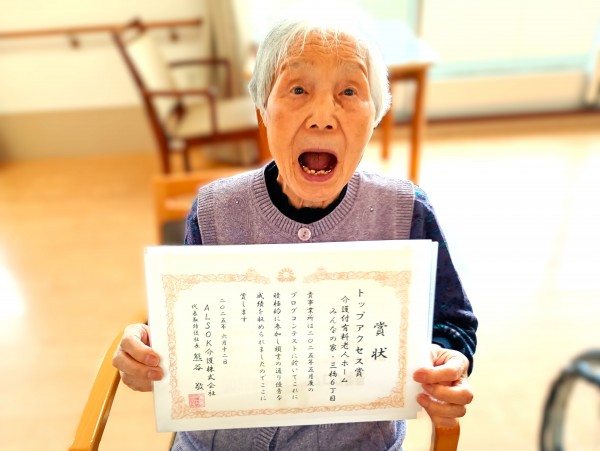 賞状
トップアクセス賞
介護付有料老人ホーム
みんなの家・三橋６丁目
貴事業所は二〇二五年五月度の
ブログコンテストに於いてこれに
積極的に参加し頭書の通り優秀な
成績を収められましたのでここに
賞します
二〇二五年六月十二日
ＡＬＳＯＫ介護株式会社
代表取締役社長 熊谷 敬